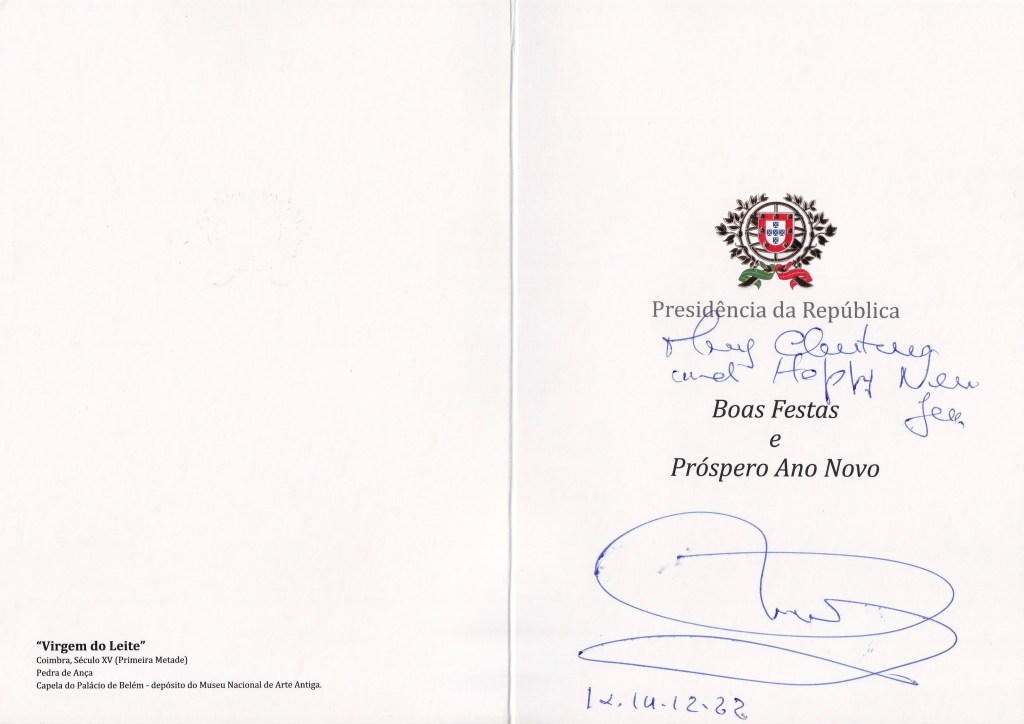 Presidência da República
Merry Christmas
and Happy New
Year
Boas Festas
e
Próspero Ano Novo
“Virgem do Leite”
Coimbra, Século XV (Primeira Metade)
Pedra de Ança
Capela do Palácio de Belém - depósito do Museu Nacional de Arte Antiga.